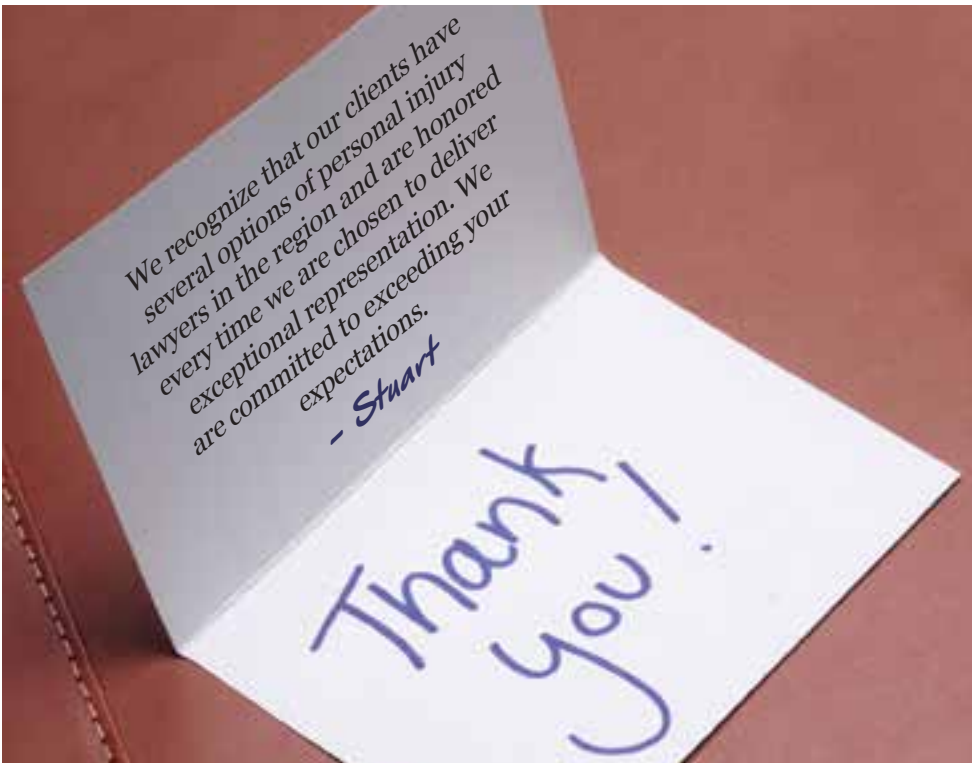 We recognize that our clients have
several options of personal injury
lawyers in the region and are honored
every time we are chosen to deliver
exceptional representation. We
are committed to exceeding your
expectations.
- Stuart
Thank
you!